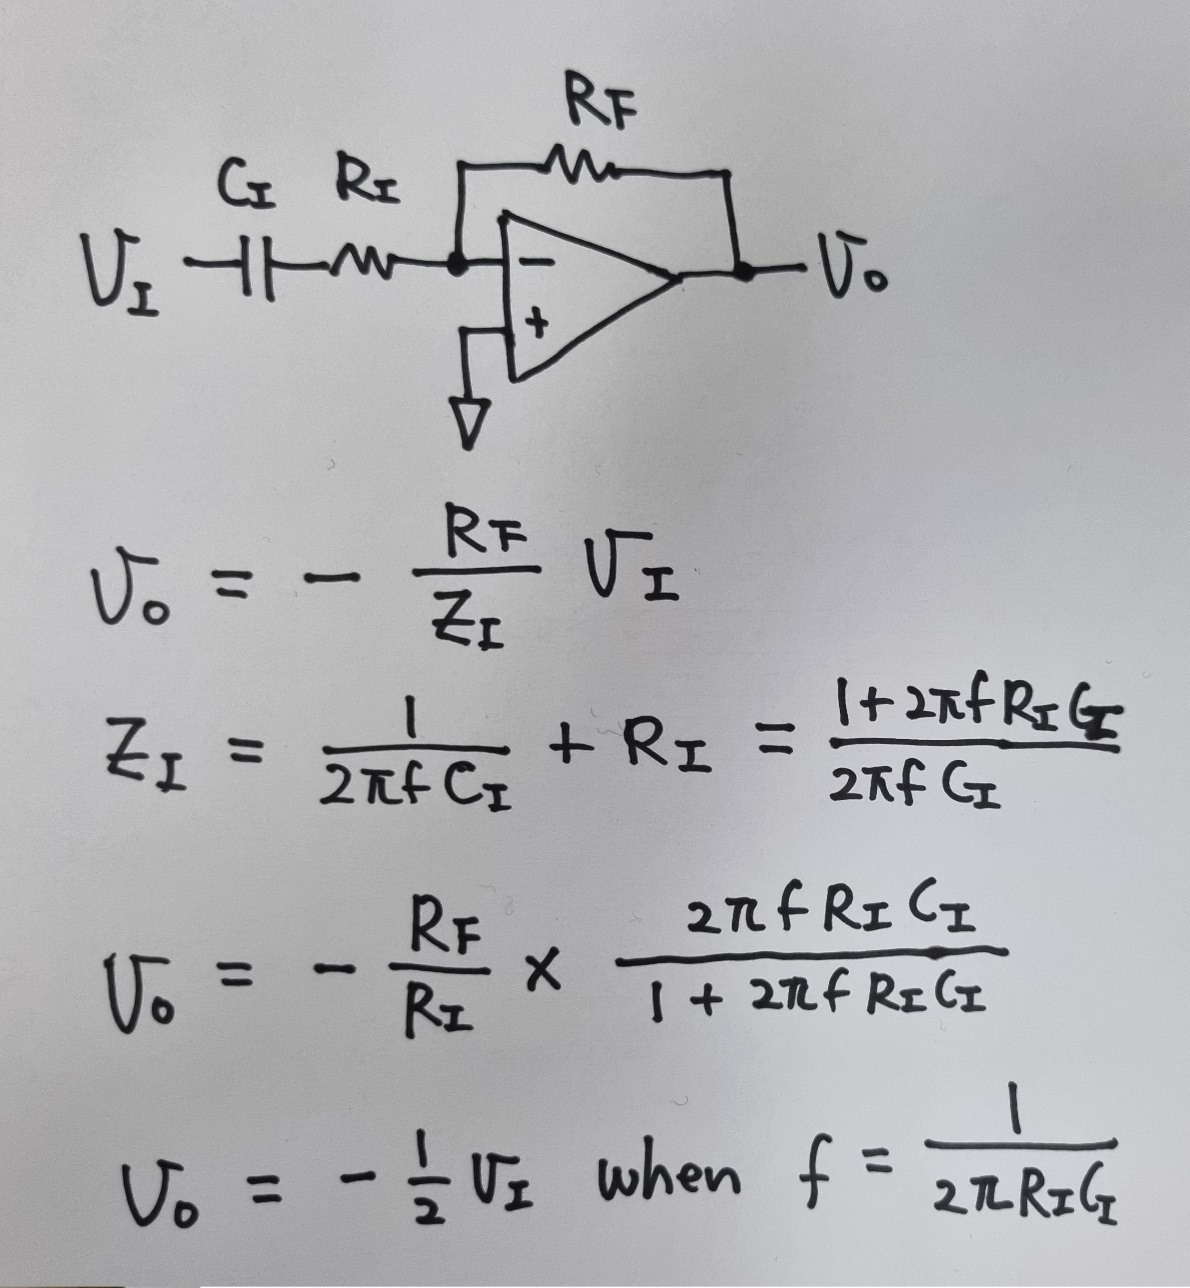 R_F
C_I R_I
V_I − + V_o
V_o = - R_F / Z_I V_I
Z_I = 1 / 2πf C_I + R_I = 1 + 2πf R_I C_I / 2πf C_I
V_o = - R_F / R_I × 2πf R_I C_I / 1 + 2πf R_I C_I
V_o = - 1/2 V_I when f = 1 / 2π R_I C_I